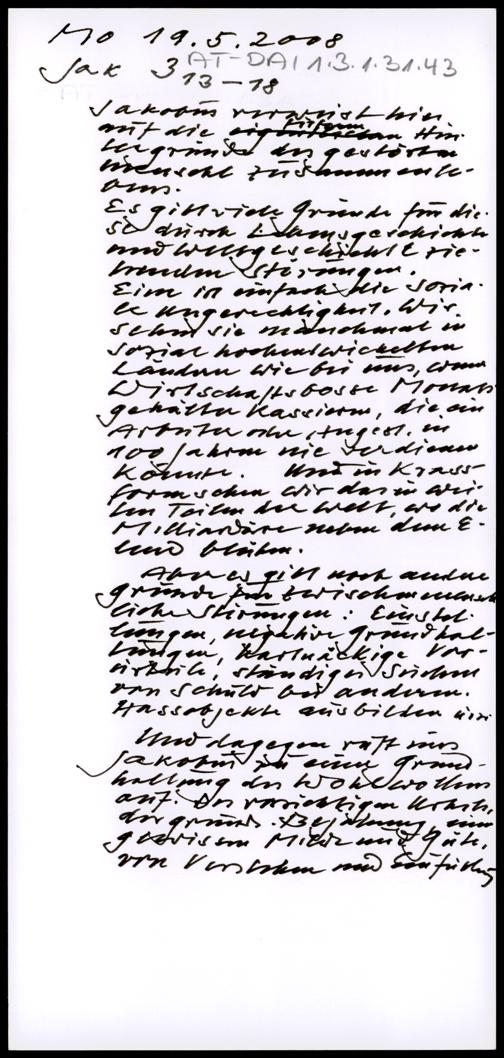 Mo 19.5.2008
Jak 3 AT-DAI 1.3.1.31.43
13-18
Jakobus verweist hin
auf die tieferen Hin-
tergründe des gestörten
menschl. Zusammenle-
bens.
Es gibt viele Gründe für die-
se durch Lebensgeschichte
und Weltgeschichte zie-
henden Störungen.
Eine ist einfach die sozia-
le Ungerechtigkeit. Wir
sehen sie manchmal in
sozial hochentwickelten
Ländern wie bei uns, wenn
Wirtschaftsbosse Monats-
gehälter kassieren, die ein
Arbeiter oder Angest. in
100 Jahren nie verdienen
könnte. Und in Krass-
form sehen wir das in wei-
ten Teilen der Welt, wo die
Milliardäre neben dem E-
lend blühen.
Aber es gibt noch andere
Gründe für zwischenmensch-
liche Störungen: Einstel-
lungen, negative Grundhal-
tungen, hartnäckige Vor-
urteile, ständiges Suchen
von Schuld bei anderen.
Hassobjekte ausbilden
Und dagegen ruft uns
Jakobus zu einer Grund-
haltung des Wohlwollens
auf. Des vorsichtigen Urteils,
der grunds. Bejahung, einer
gewissen Milde und Güte,
von Verstehen und Einfühlung